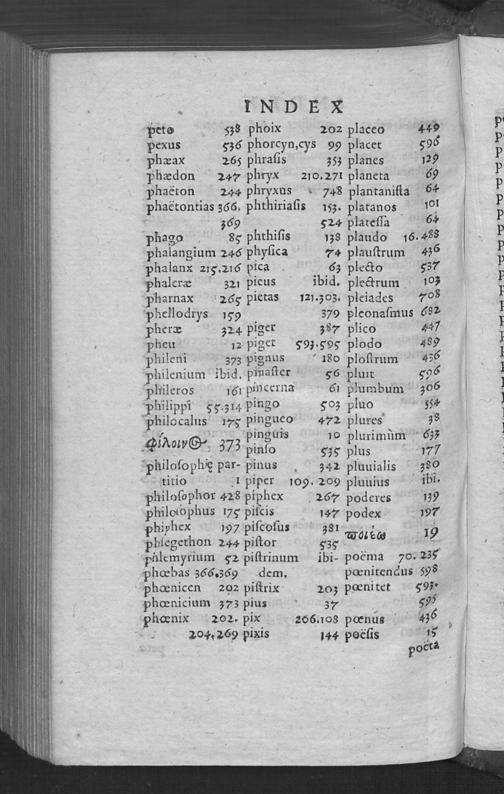 INDEX
peto 538
pexus 536
phæax 265
phædon 247
phaëton 244
phaëtontias 366.
369
phago 85
phalangium 246
phalanx 215.216
phaleræ 321
pharnax 265
phellodrys 159
pheræ 324
pheu 12
phileni 373
philenium ibid.
phileros 161
philippi 55.314
philocalus 175
Φίλοιν⊕ 373
philosophię par-
titio 1
philosophor 428
philosophus 175
phiphex 197
phlegethon 244
phlemyrium 52
phœbas 366.369
phœnicen 202
phœnicium 373
phœnix 202.
204.269
phoix 202
phorcyn,cys 99
phrasis 353
phryx 210.271
phryxus 748
phthiriasis 153.
524
phthisis 138
physica 74
pica 63
picus ibid.
pietas 121.303.
379
piger 387
piget 593.595
pignus 180
pinaster 56
pincerna 61
pingo 503
pingueo 472
pinguis 10
pinso 535
pinus 342
piper 109.209
piphex 267
piscis 147
piscosus 381
pistor 535
pistrinum ibi-
dem.
pistrix 203
pius 37
pix 206.108
pixis 144
placeo 449
placet 596
planes 129
planeta 69
plantanista 64
platanos 101
platessa 64
plaudo 16.488
plaustrum 436
plecto 537
plectrum 103
pleiades 708
pleonasmus 682
plico 447
plodo 489
plostrum 436
pluit 596
plumbum 306
pluo 554
plures 38
plurimùm 633
plus 177
pluuialis 380
pluuius ibi.
poderes 139
podex 197
ποιέω 19
poëma 70.235
pœnitendus 598
pœnitet 593.
595
pœnus 436
poësis 15
poëta